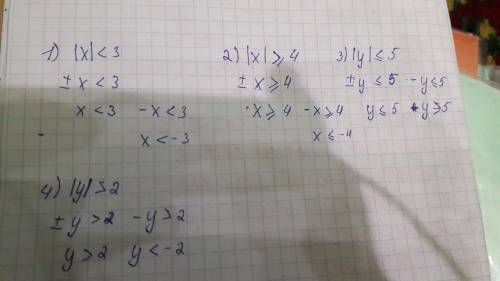 1) |x| < 3
± x < 3
x < 3   - x < 3
x < -3
2) |x| ⩾ 4
± x ⩾ 4
x ⩾ 4   - x ⩾ 4
x ⩽ -4
3) |y| ⩽ 5
± y ⩽ 5   - y ⩽ 5
y ⩽ 5   y ⩾ 5
4) |y| > 2
± y > 2   - y > 2
y > 2   y < -2